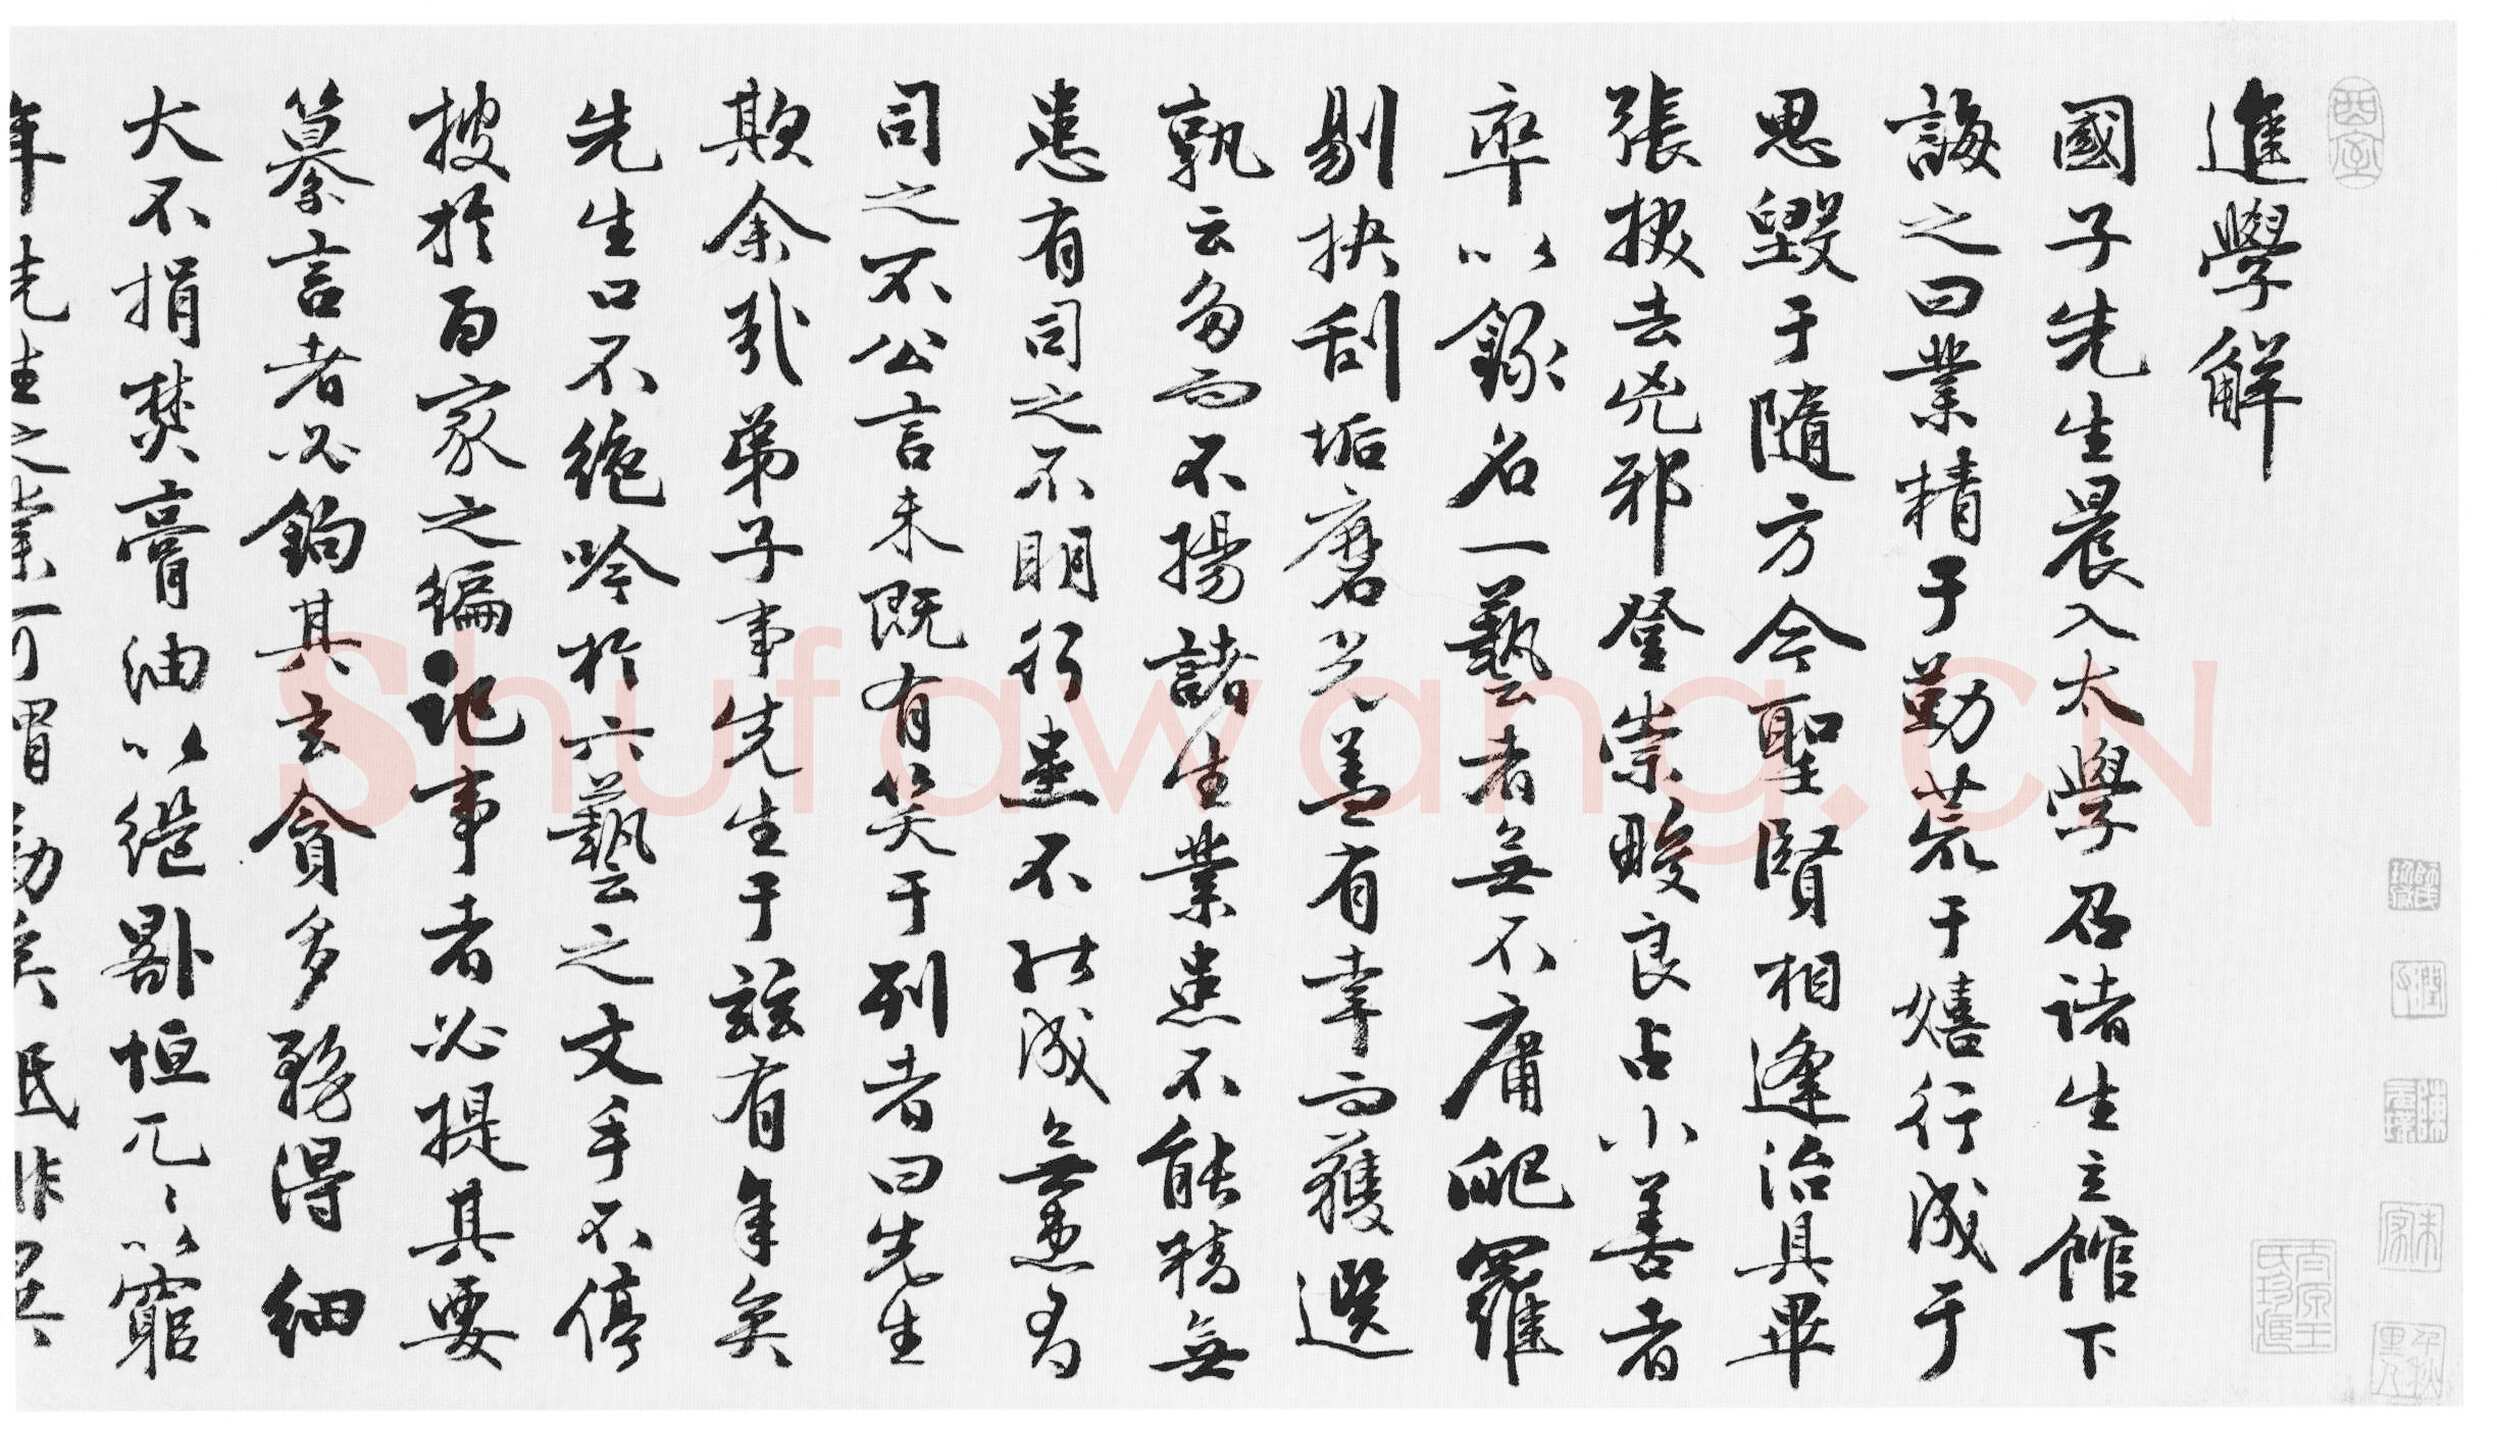 進學解
國子先生晨入太學召諸生立館下
誨之曰業精于勤荒于嬉行成于
思毀于隨方今聖賢相逢治具畢
張拔去兇邪登崇畯良占小善者
率以錄名一藝者無不庸爬羅
剔抉刮垢磨光蓋有幸而獲選
孰云多而不揚諸生業患不能精無
患有司之不明行患不能成無患有
司之不公言未既有笑于列者曰先生
欺余哉弟子事先生于茲有年矣
先生口不絕吟於六藝之文手不停
披於百家之編記事者必提其要
纂言者必鉤其玄貪多務得細
大不捐焚膏油以繼晷恒兀〻以窮
年先生之業可謂勤矣
Shufawang.CN